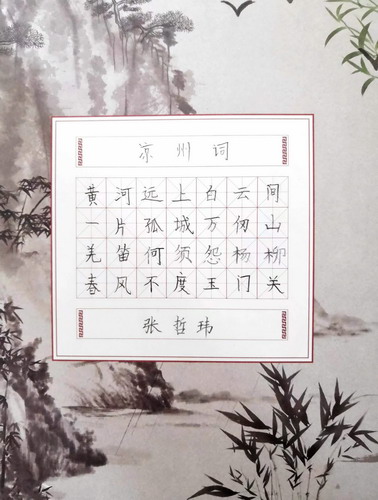 凉州词
黄河远上白云间
一片孤城万仞山
羌笛何须怨杨柳
春风不度玉门关
张哲玮